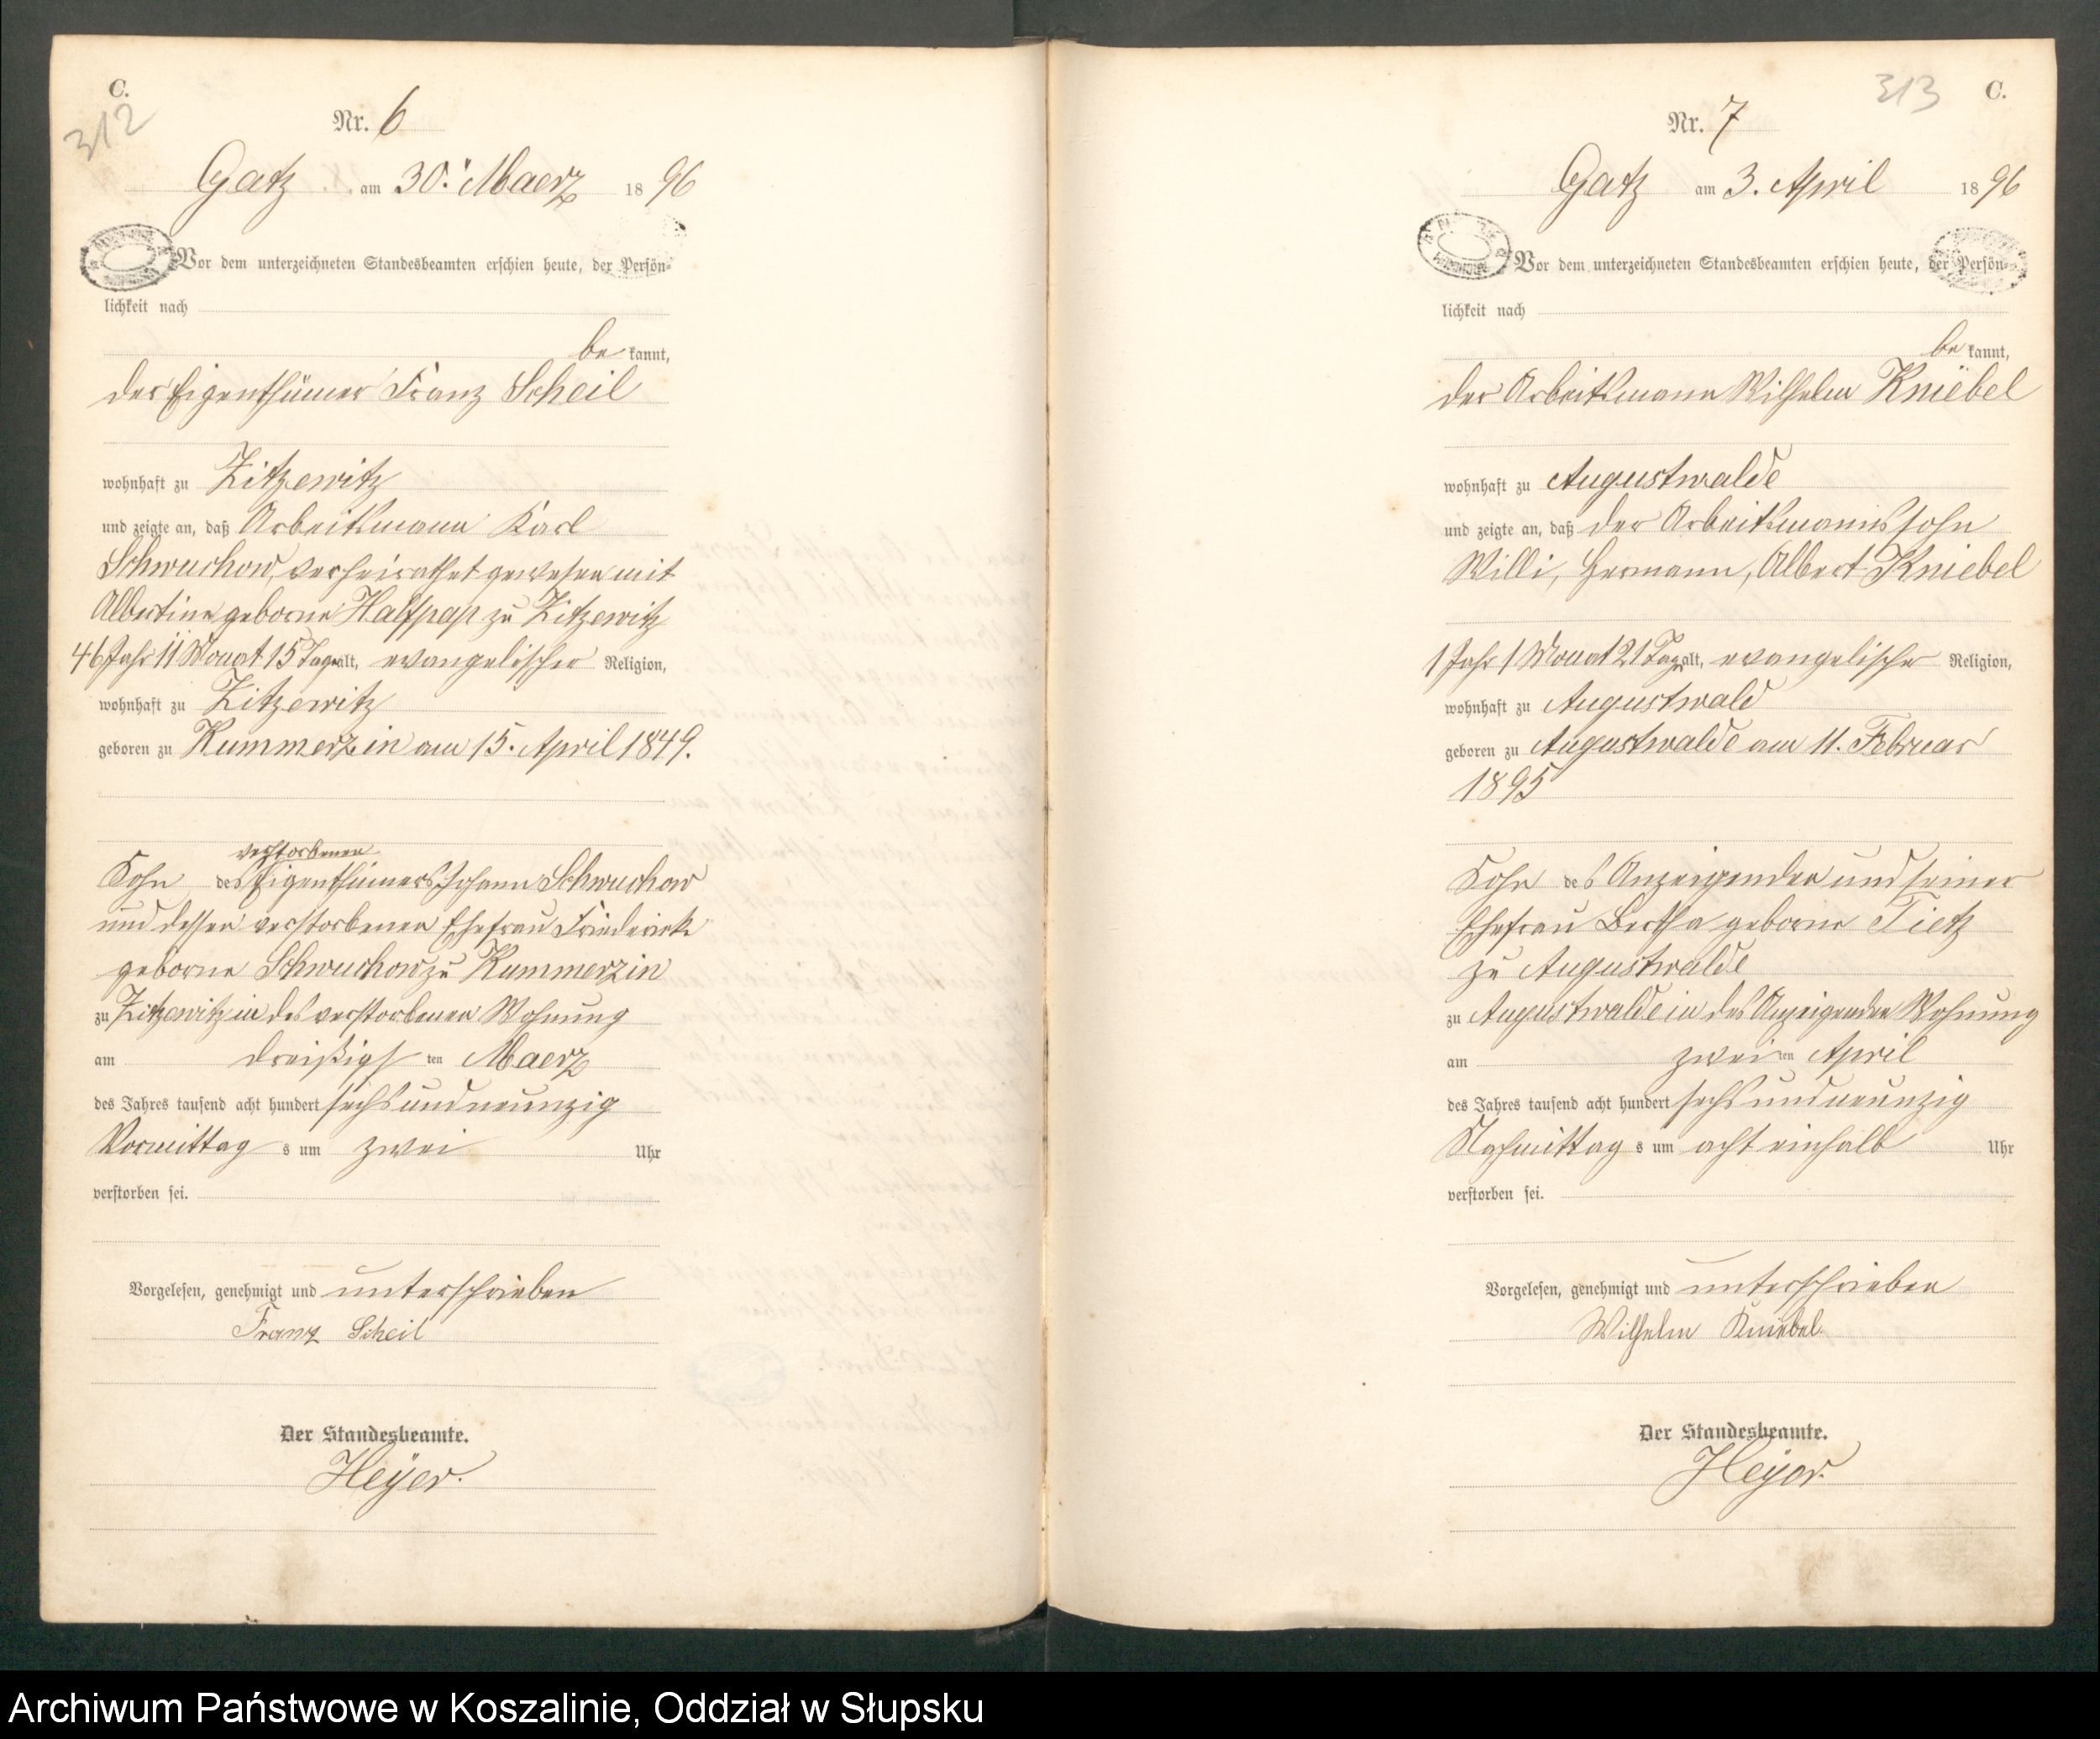 C.
312
Nr. 6
Gatz am 30. Maerz 1896
Vor dem unterzeichneten Standesbeamten erschien heute, der Persön-
lichkeit nach
be kannt,
der Eigenthümer Franz Scheil
wohnhaft zu Zitzewitz
und zeigte an, daß Arbeitsmann Karl
Schwuchow, verheirathet gewesen mit
Albertine geborne Halfpap zu Zitzewitz
46 Jahr 11 Monat 15 Tage alt, evangelischer Religion,
wohnhaft zu Zitzewitz
geboren zu Kummerzin am 15. April 1849.
verstorbenen
Sohn des Eigenthümers Johann Schwuchow
und dessen verstorbenen Ehefrau Friederike
geborne Schwuchow zu Kummerzin
zu Zitzewitz in des verstorbenen Wohnung
am dreißigsten Maerz
des Jahres tausend acht hundert sechs und neunzig
Vormittags um zwei Uhr
verstorben sei.
Vorgelesen, genehmigt und unterschrieben
Franz Scheil
Der Standesbeamte.
Heyer.
313
C.
Nr. 7
Gatz am 3. April 1896
Vor dem unterzeichneten Standesbeamten erschien heute, der Persön-
lichkeit nach
be kannt,
der Arbeitsmann Wilhelm Kniebel
wohnhaft zu Augustwalde
und zeigte an, daß der Arbeitsmannssohn
Willi, Hermann, Albert Kniebel
1 Jahr 1 Monat 21 Tage alt, evangelischer Religion,
wohnhaft zu Augustwald
geboren zu Augustwalde am 11. Februar
1895
Sohn des Anzeigenden und seiner
Ehefrau Bertha geborne Tietz
zu Augustwalde
zu Augustwalde in des Anzeigenden Wohnung
am zweiten April
des Jahres tausend acht hundert sechs und neunzig
Nachmittags um acht einhalb Uhr
verstorben sei.
Vorgelesen, genehmigt und unterschrieben
Wilhelm Kniebel.
Der Standesbeamte.
Heyer.
Archiwum Państwowe w Koszalinie, Oddział w Słupsku